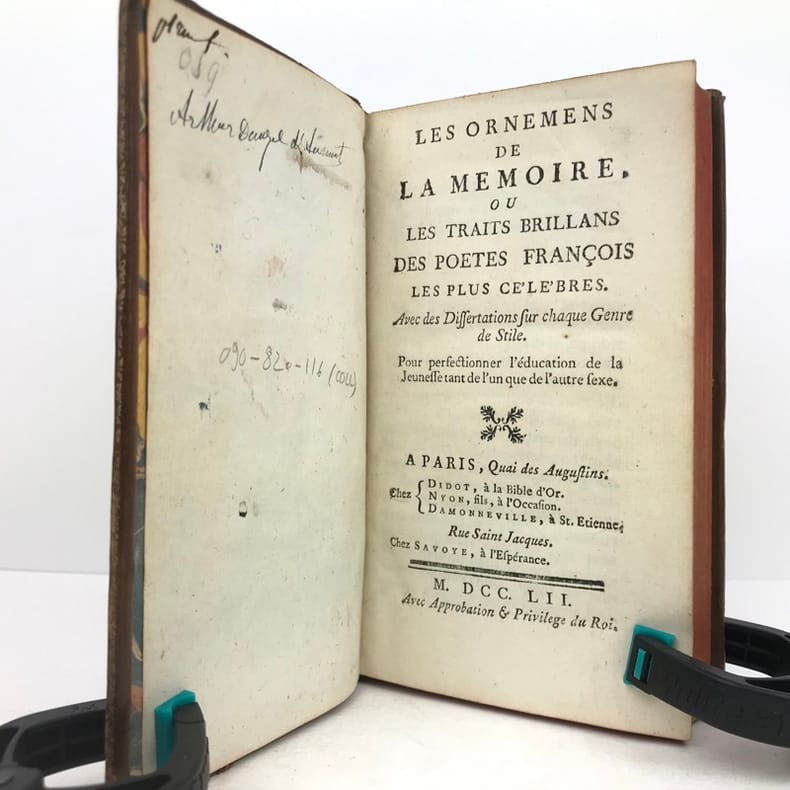 059
Arthur
090-820-116 (COLL)
LES ORNEMENS
DE
LA MEMOIRE.
OU
LES TRAITS BRILLANS
DES POETES FRANÇOIS
LES PLUS CE'LE'BRES.
Avec des Dissertations sur chaque Genre
de Stile.
Pour perfectionner l'éducation de la
Jeunesse tant de l'un que de l'autre sexe.
A PARIS, Quai des Augustins.
Chez { DIDOT, à la Bible d'Or.
NYON, fils, à l'Occasion.
DAMONNEVILLE, à St. Etienne;
Rue Saint Jacques.
Chez SAVOYE, à l'Espérance.
M. DCC. LII.
Avec Approbation & Privilege du Roi.